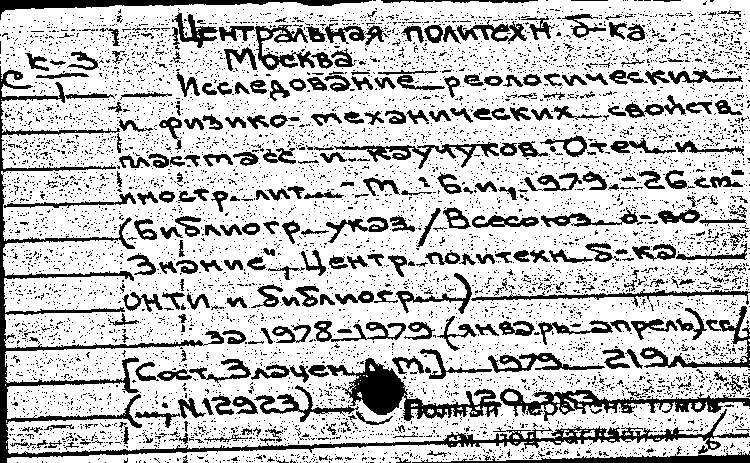 Центральная политехн. б-ка
К-3
Москва
С 1
Исследование реологических
и физико-механических свойств
пластмасс и каучуков: Отеч. и
иностр. лит... - М.: Б.и., 1979. - 26 см. -
(Библиогр. указ. / Всесоюз. о-во
"Знание", Центр. политехн. б-ка.
ОНТИ и библиогр...)
...за 1978-1979 (январь-апрель) гг. /
[Сост. Злачен. Л.М.]. 1979. 219 л.
(...; N.12923) 120 экз.
Полный перечень томов
см. под заглавием